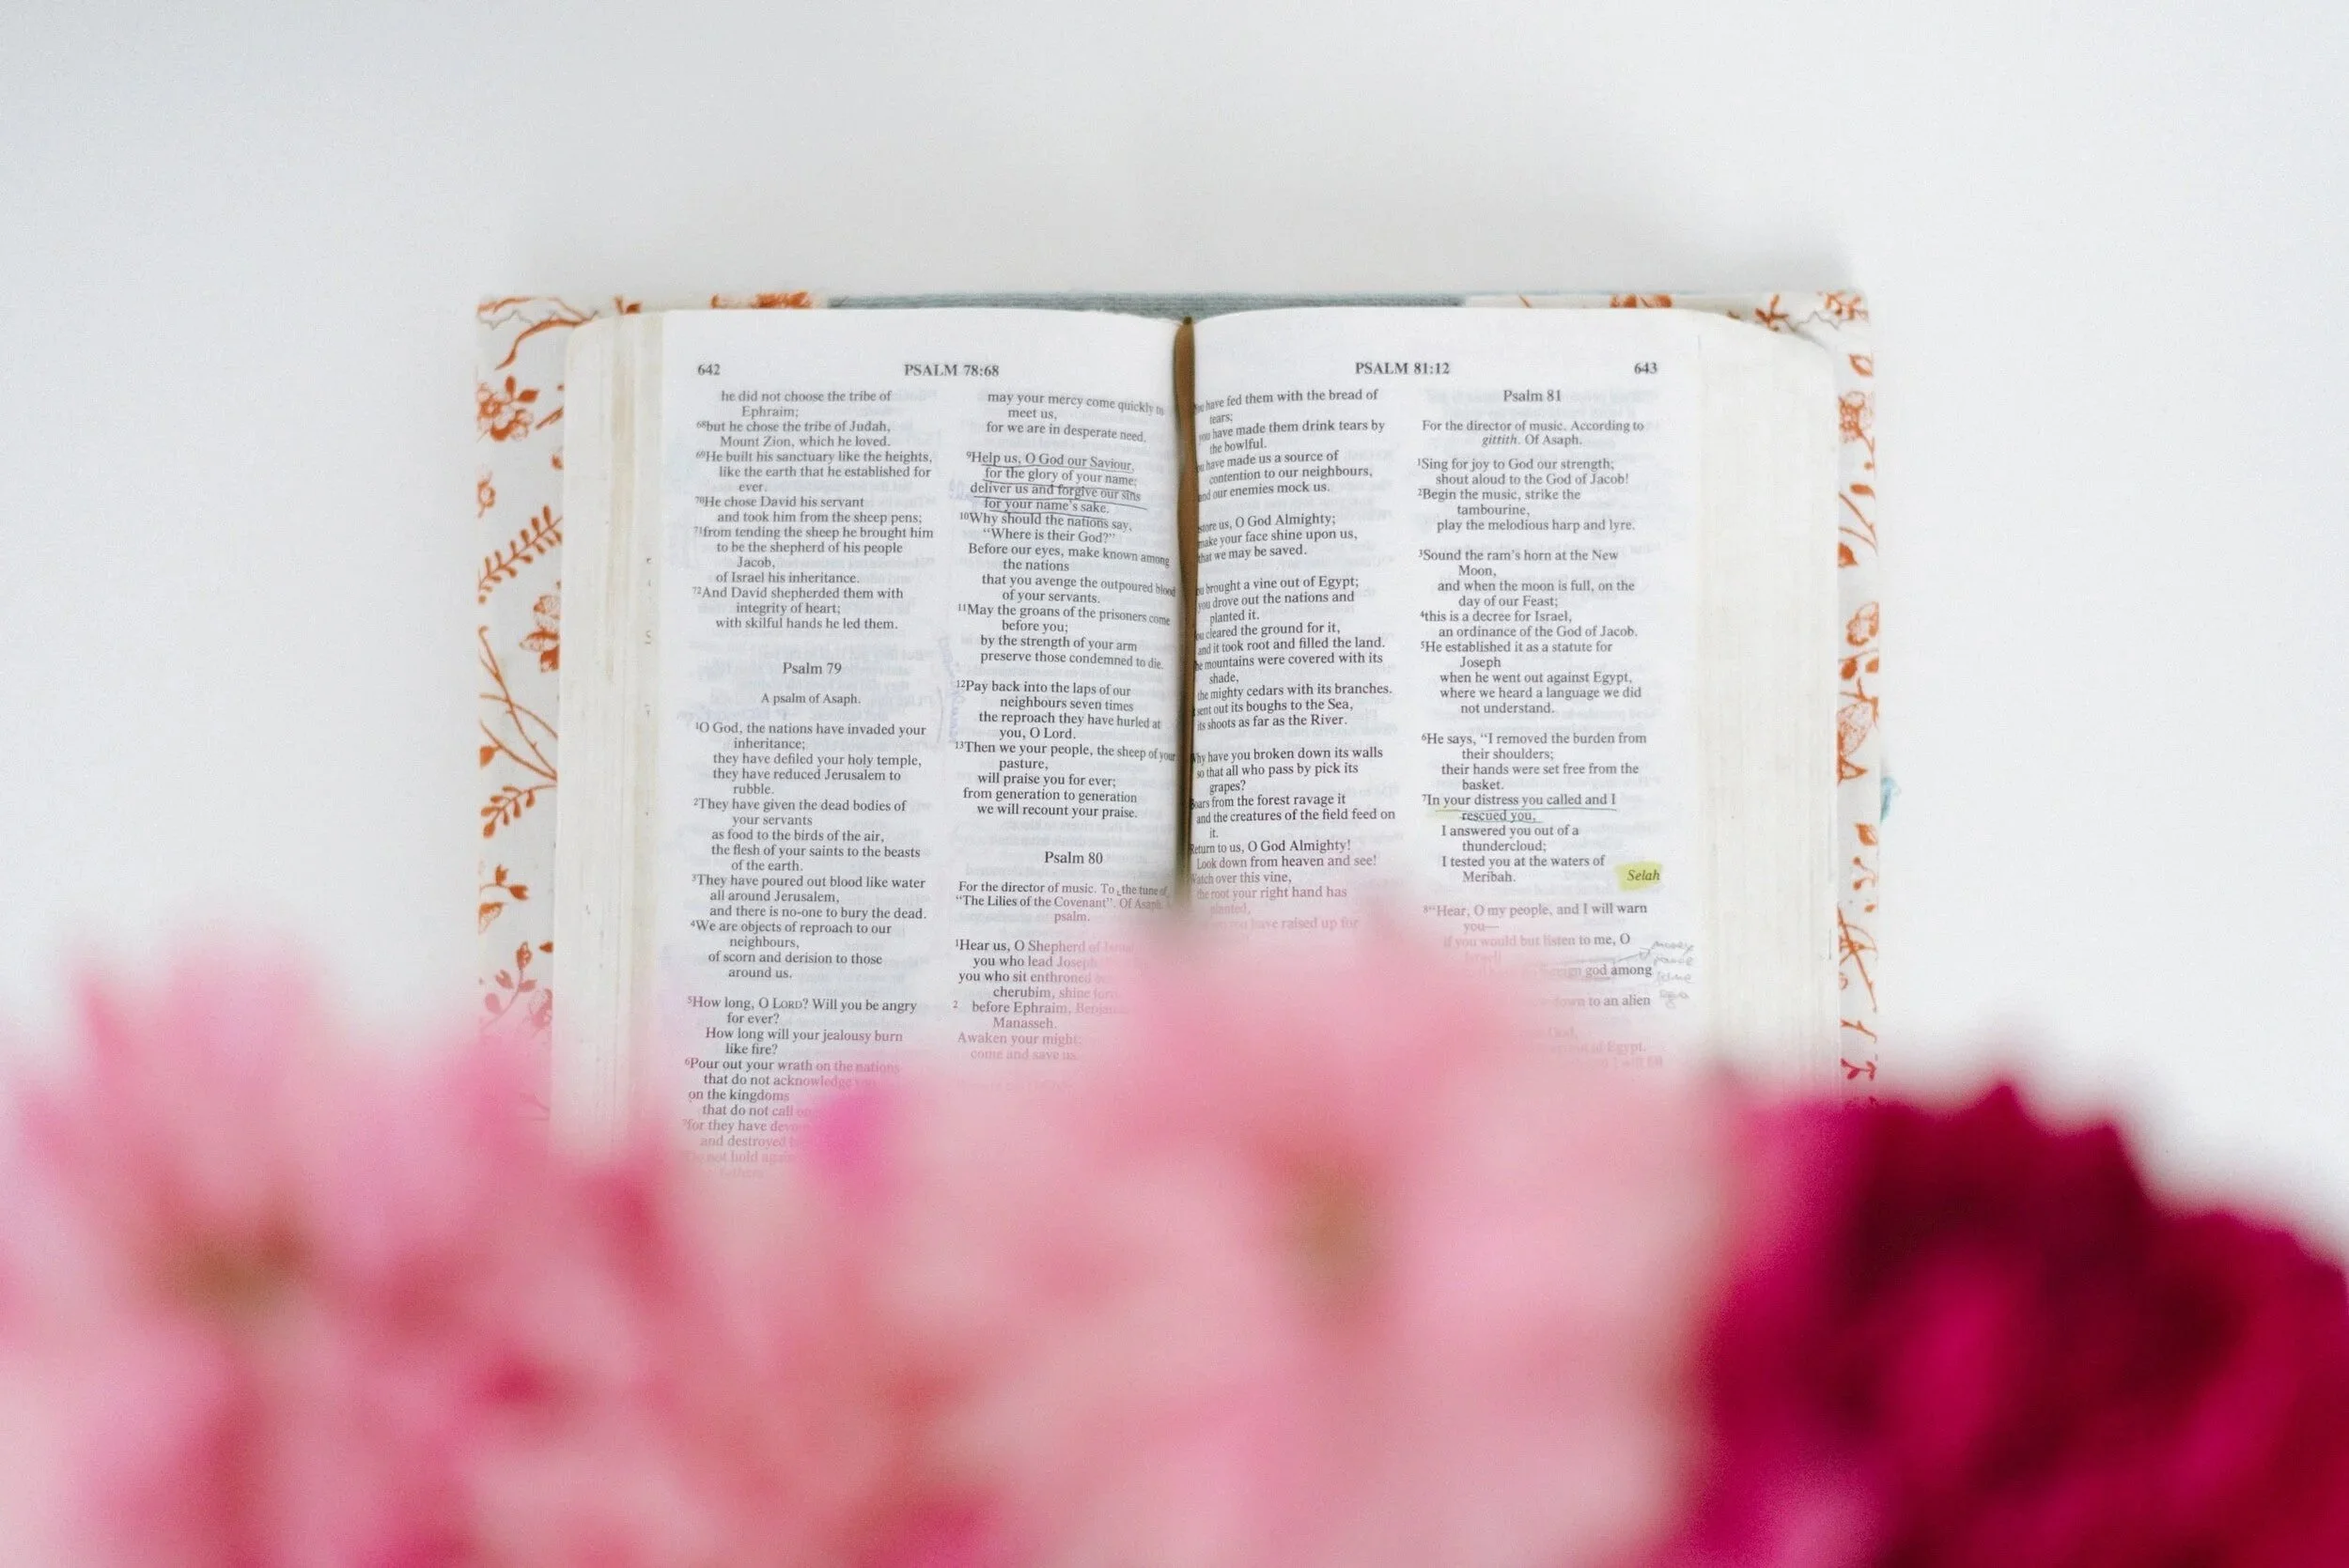 642
PSALM 78:68
he did not choose the tribe of
Ephraim;
68but he chose the tribe of Judah,
Mount Zion, which he loved.
69He built his sanctuary like the heights,
like the earth that he established for
ever.
70He chose David his servant
and took him from the sheep pens;
71from tending the sheep he brought him
to be the shepherd of his people
Jacob,
of Israel his inheritance.
72And David shepherded them with
integrity of heart;
with skilful hands he led them.
Psalm 79
A psalm of Asaph.
1O God, the nations have invaded your
inheritance;
they have defiled your holy temple,
they have reduced Jerusalem to
rubble.
2They have given the dead bodies of
your servants
as food to the birds of the air,
the flesh of your saints to the beasts
of the earth.
3They have poured out blood like water
all around Jerusalem,
and there is no-one to bury the dead.
4We are objects of reproach to our
neighbours,
of scorn and derision to those
around us.
5How long, O LORD? Will you be angry
for ever?
How long will your jealousy burn
like fire?
6Pour out your wrath on the nations
that do not acknowledge
on the kingdoms
that do not call on
7for they have
and destroyed
not hold
may your mercy come quickly to
meet us,
for we are in desperate need.
9Help us, O God our Saviour,
for the glory of your name;
deliver us and forgive our sins
for your name's sake.
10Why should the nations say,
"Where is their God?"
Before our eyes, make known among
the nations
that you avenge the outpoured blood
of your servants.
11May the groans of the prisoners come
before you;
by the strength of your arm
preserve those condemned to die.
12Pay back into the laps of our
neighbours seven times
the reproach they have hurled at
you, O Lord.
13Then we your people, the sheep of your
pasture,
will praise you for ever;
from generation to generation
we will recount your praise.
Psalm 80
For the director of music. To the tune of
"The Lilies of the Covenant". Of Asaph.
psalm.
1Hear us, O Shepherd of
you who lead
you who sit enthroned
cherubim, shine
2 before Ephraim,
Manasseh.
Awaken your might;
come and save us.
PSALM 81:12
643
have fed them with the bread of
tears;
you have made them drink tears by
the bowlful.
have made us a source of
contention to our neighbours,
and our enemies mock us.
us, O God Almighty;
make your face shine upon us,
that we may be saved.
brought a vine out of Egypt;
you drove out the nations and
planted it.
cleared the ground for it,
and it took root and filled the land.
mountains were covered with its
shade,
the mighty cedars with its branches.
sent out its boughs to the Sea,
its shoots as far as the River.
have you broken down its walls
so that all who pass by pick its
grapes?
from the forest ravage it
and the creatures of the field feed on
it.
Return to us, O God Almighty!
Look down from heaven and see!
Watch over this vine,
the root your right hand has
planted,
have raised up for
Psalm 81
For the director of music. According to
gittith. Of Asaph.
1Sing for joy to God our strength;
shout aloud to the God of Jacob!
2Begin the music, strike the
tambourine,
play the melodious harp and lyre.
3Sound the ram's horn at the New
Moon,
and when the moon is full, on the
day of our Feast;
4this is a decree for Israel,
an ordinance of the God of Jacob.
5He established it as a statute for
Joseph
when he went out against Egypt,
where we heard a language we did
not understand.
6He says, "I removed the burden from
their shoulders;
their hands were set free from the
basket.
7In your distress you called and I
rescued you,
I answered you out of a
thundercloud;
I tested you at the waters of
Meribah.
Selah
8"Hear, O my people, and I will warn
you—
if you would but listen to me, O
god among
down to an alien
of Egypt.